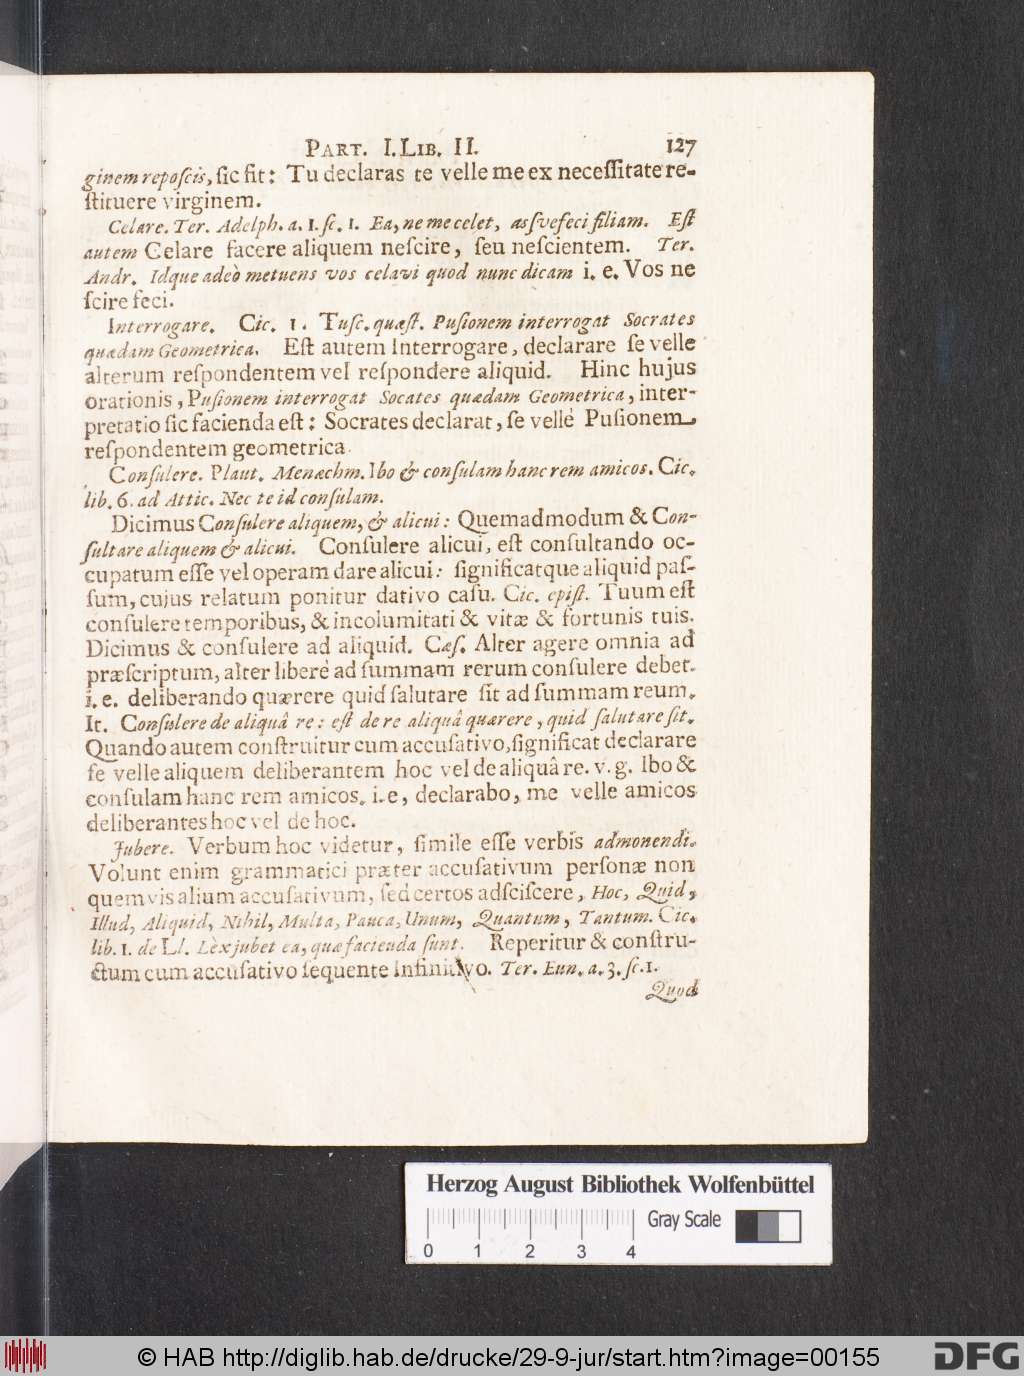 PART. I. LIB. II. 127
ginem reposcis, sic fit: Tu declaras te velle me ex necessitate re-
stituere virginem.
Celare. Ter. Adelph. a. 1. sc. 1. Ea, ne me celet, assvefeci filiam. Est
autem Celare facere aliquem nescire, seu nescientem. Ter.
Andr. Idque adeò metuens vos celavi quod nunc dicam i. e. Vos ne
scire feci.
Interrogare. Cic. 1. Tusc. quæst. Pusionem interrogat Socrates
quædam Geometrica. Est autem Interrogare, declarare se velle
alterum respondentem vel respondere aliquid. Hinc hujus
orationis, Pusionem interrogat Socates quædam Geometrica, inter-
pretatio sic facienda est: Socrates declarat, se velle Pusionem
respondentem geometrica.
Consulere. Plaut. Menæchm. Ibo & consulam hanc rem amicos. Cic.
lib. 6. ad Attic. Nec te id consulam.
Dicimus Consulere aliquem, & alicui: Quemadmodum & Con-
sultare aliquem & alicui. Consulere alicui, est consultando oc-
cupatum esse vel operam dare alicui: significatque aliquid pas-
sum, cujus relatum ponitur dativo casu. Cic. epist. Tuum est
consulere temporibus, & incolumitati & vitæ & fortunis tuis.
Dicimus & consulere ad aliquid. Cæs. Alter agere omnia ad
præscriptum, alter liberè ad summam rerum consulere debet.
i. e. deliberando quærere quid salutare sit ad summam reum.
It. Consulere de aliquâ re: est de re aliquâ quærere, quid salutare sit.
Quando autem construitur cum accusativo, significat declarare
se velle aliquem deliberantem hoc vel de aliquâ re. v. g. Ibo &
consulam hanc rem amicos. i. e, declarabo, me velle amicos
deliberantes hoc vel de hoc.
Jubere. Verbum hoc videtur, simile esse verbis admonendi.
Volunt enim grammatici præter accusativum personæ non
quemvis alium accusativum, sed certos adsciscere, Hoc, Quid,
Illud, Aliquid, Nihil, Multa, Pauca, Unum, Quantum, Tantum. Cic.
lib. 1. de Ll. Lèx jubet ea, quæ facienda sunt. Reperitur & constru-
ctum cum accusativo sequente Infinitivo. Ter. Eun. a. 3. sc. 1.
Quod
Herzog August Bibliothek Wolfenbüttel
Gray Scale
0 1 2 3 4
© HAB http://diglib.hab.de/drucke/29-9-jur/start.htm?image=00155
DFG